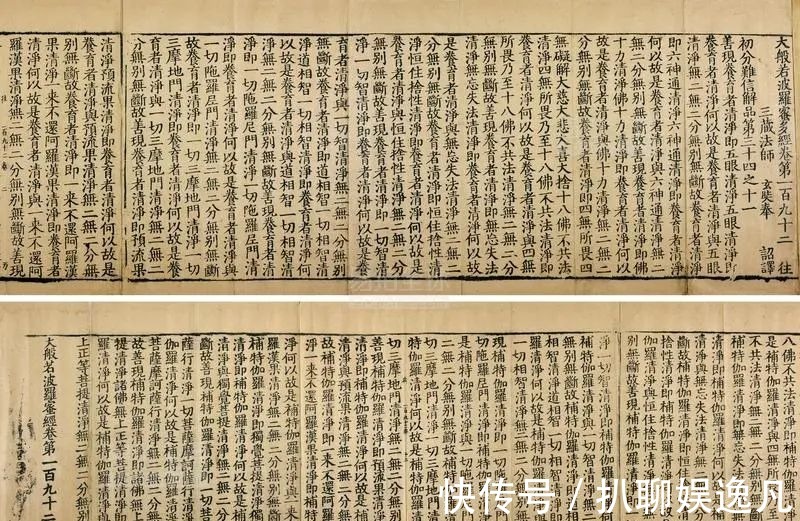 大般若波羅蜜多經卷第一百九十二 往
三藏法師 玄奘奉 詔譯
初分難信解品第三十四之十一
善現養育者清淨即五眼清淨五眼清淨即
養育者清淨何以故是養育者清淨與五眼
清淨無二無二分無別無斷故養育者清淨
即六神通清淨六神通清淨即養育者清淨
何以故是養育者清淨與六神通清淨無二
無二分無別無斷故善現養育者清淨即佛
十力清淨佛十力清淨即養育者清淨何以
故是養育者清淨與佛十力清淨無二無二
分無別無斷故養育者清淨即四無所畏四
無礙解大慈大悲大喜大捨十八佛不共法
清淨四無所畏乃至十八佛不共法清淨即
養育者清淨何以故是養育者清淨與四無
所畏乃至十八佛不共法清淨無二無二分
無別無斷故善現養育者清淨即無忘失法
清淨無忘失法清淨即養育者清淨何以故
是養育者清淨與無忘失法清淨無二無二
分無別無斷故養育者清淨即恒住捨性清
淨恒住捨性清淨即養育者清淨何以故是
養育者清淨與恒住捨性清淨無二無二分
無別無斷故善現養育者清淨即一切智清
淨一切智清淨即養育者清淨何以故是養
育者清淨與一切智清淨無二無二分無別
無斷故養育者清淨即道相智一切相智清
淨道相智一切相智清淨即養育者清淨何
以故是養育者清淨與道相智一切相智清
淨無二無二分無別無斷故善現養育者清
淨即一切陀羅尼門清淨一切陀羅尼門清
淨即養育者清淨何以故是養育者清淨與
一切陀羅尼門清淨無二無二分無別無斷
故養育者清淨即一切三摩地門清淨一切
三摩地門清淨即養育者清淨何以故是養
育者清淨與一切三摩地門清淨無二無二
分無別無斷故善現養育者清淨即預流果
清淨預流果清淨即養育者清淨何以故是
養育者清淨與預流果清淨無二無二分無
別無斷故養育者清淨即一來不還阿羅漢
果清淨一來不還阿羅漢果清淨即養育者
清淨何以故是養育者清淨與一來不還阿
羅漢果清淨無二無二分無別無斷故善現
八佛不共法清淨
不共法清淨即補特伽羅
是補特伽羅清淨與四無
補特伽羅清淨
伽羅清淨與無忘失法清淨
斷故補特伽羅清淨
捨性清淨即補特伽羅清淨
伽羅清淨與恒住捨性清淨
別無斷故善現補特伽羅清淨
淨一切智清淨即補特伽羅清淨
羅清淨與一切智清淨
無斷故補特伽羅清淨
相智清淨道相智一切相智清淨
一切相智清淨無二無二分
現補特伽羅清淨即一切陀羅尼
切陀羅尼門清淨即補特伽羅清淨
是補特伽羅清淨與一切陀羅尼門
二無二分無別無斷故補特伽羅清淨
切三摩地門清淨一切三摩地門清淨
特伽羅清淨何以故是補特伽羅清淨
善現補特伽羅清淨即預流果清淨
清淨與預流果清淨無二無二分
故補特伽羅清淨即一來不還阿羅漢果
淨一來不還阿羅漢果清淨即補特
淨何以故是補特伽羅清淨
羅漢果清淨無二無二分無別無斷故
補特伽羅清淨即獨覺菩提清淨
清淨與獨覺菩提清淨無二無二分
斷故善現補特伽羅清淨即一切菩
薩行清淨一切菩薩摩訶薩行清淨
伽羅清淨何以故是補特伽羅清淨
菩薩摩訶薩行清淨無二無二分
故善現補特伽羅清淨即諸佛無上
提清淨諸佛無上正等菩提清淨
羅清淨何以故是補特伽羅清淨
上正等菩提清淨無二無二分無別
大般若波羅蜜多經卷第一百九十二
快传号 / 扒聊娱逸凡